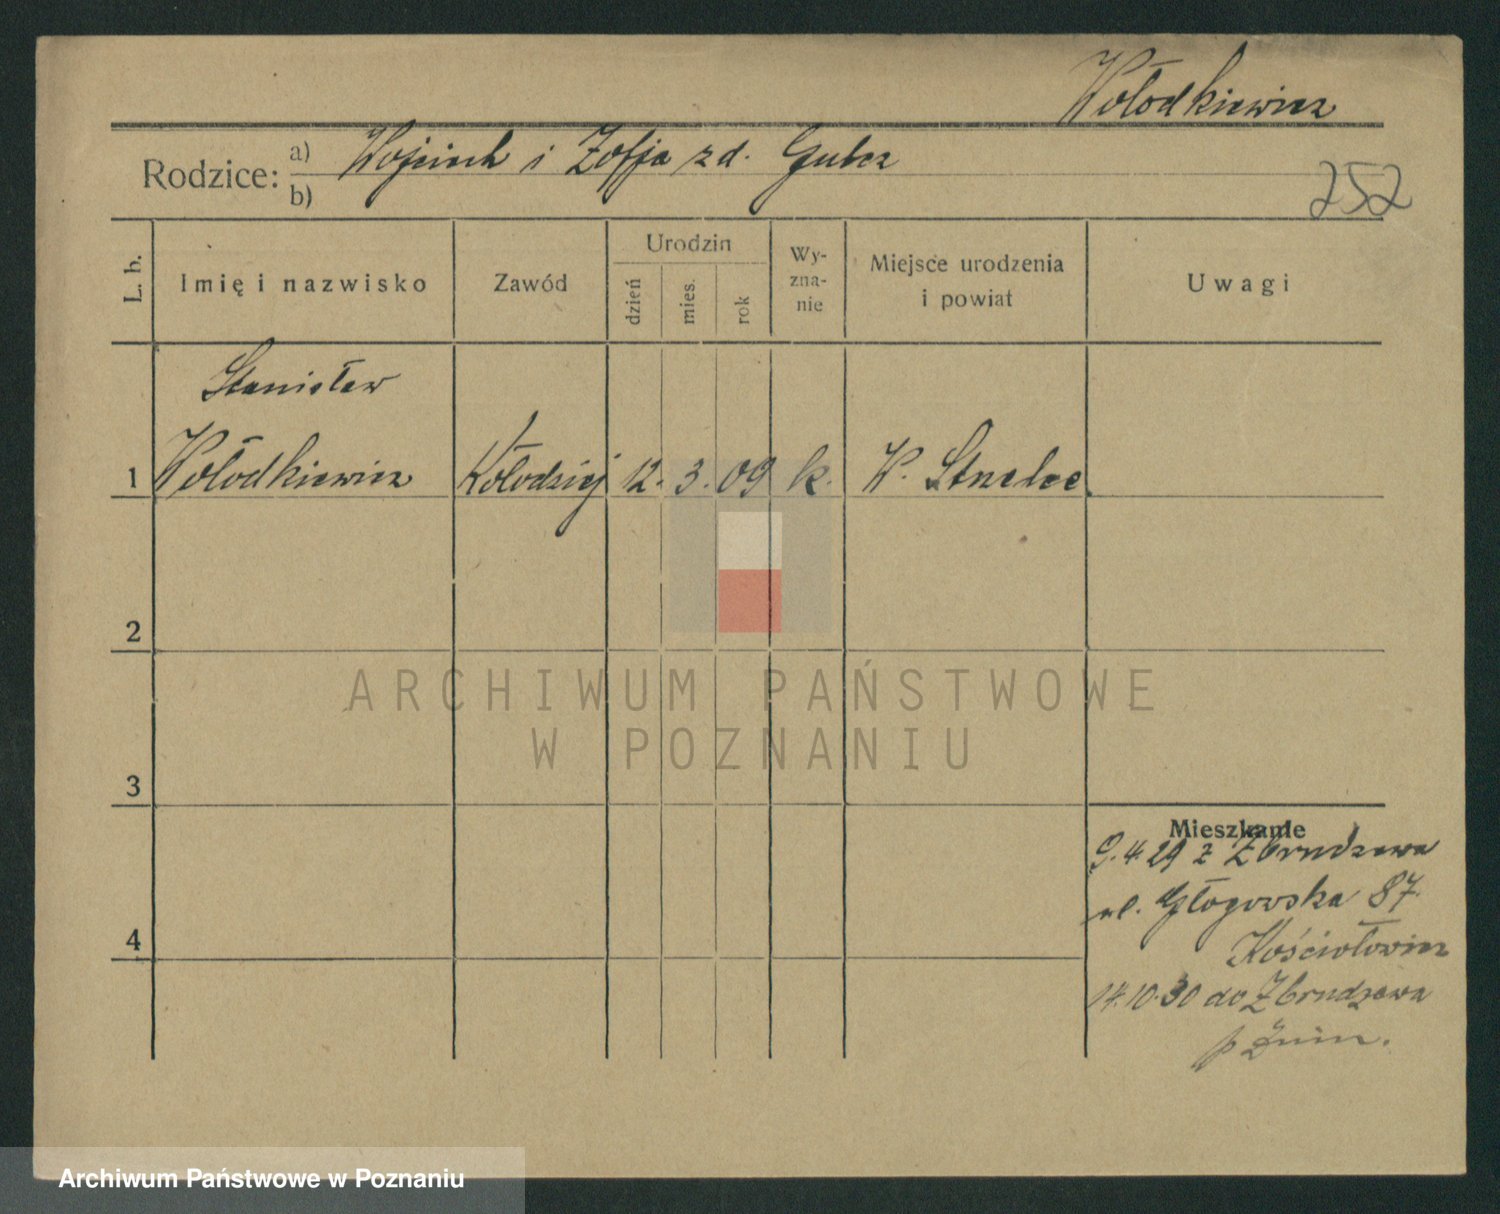 Wołodkiewicz
Rodzice: a) Wojciech i Zofja zd. Gulcz
b)
252
L. b.
Imię i nazwisko
Zawód
Urodzin
dzień
mies.
rok
Wy-
zna-
nie
Miejsce urodzenia
i powiat
Uwagi
Stanisław
1 Wołodkiewicz Kołodziej 12. 3. 09 k. W. Strzelce
2
ARCHIWUM PAŃSTWOWE
W POZNANIU
3
Mieszkanie
9.4.29 z Zbrudzewa
ul. Głogowska 87
4
14.10.30 do Zbrudzewa
Archiwum Państwowe w Poznaniu